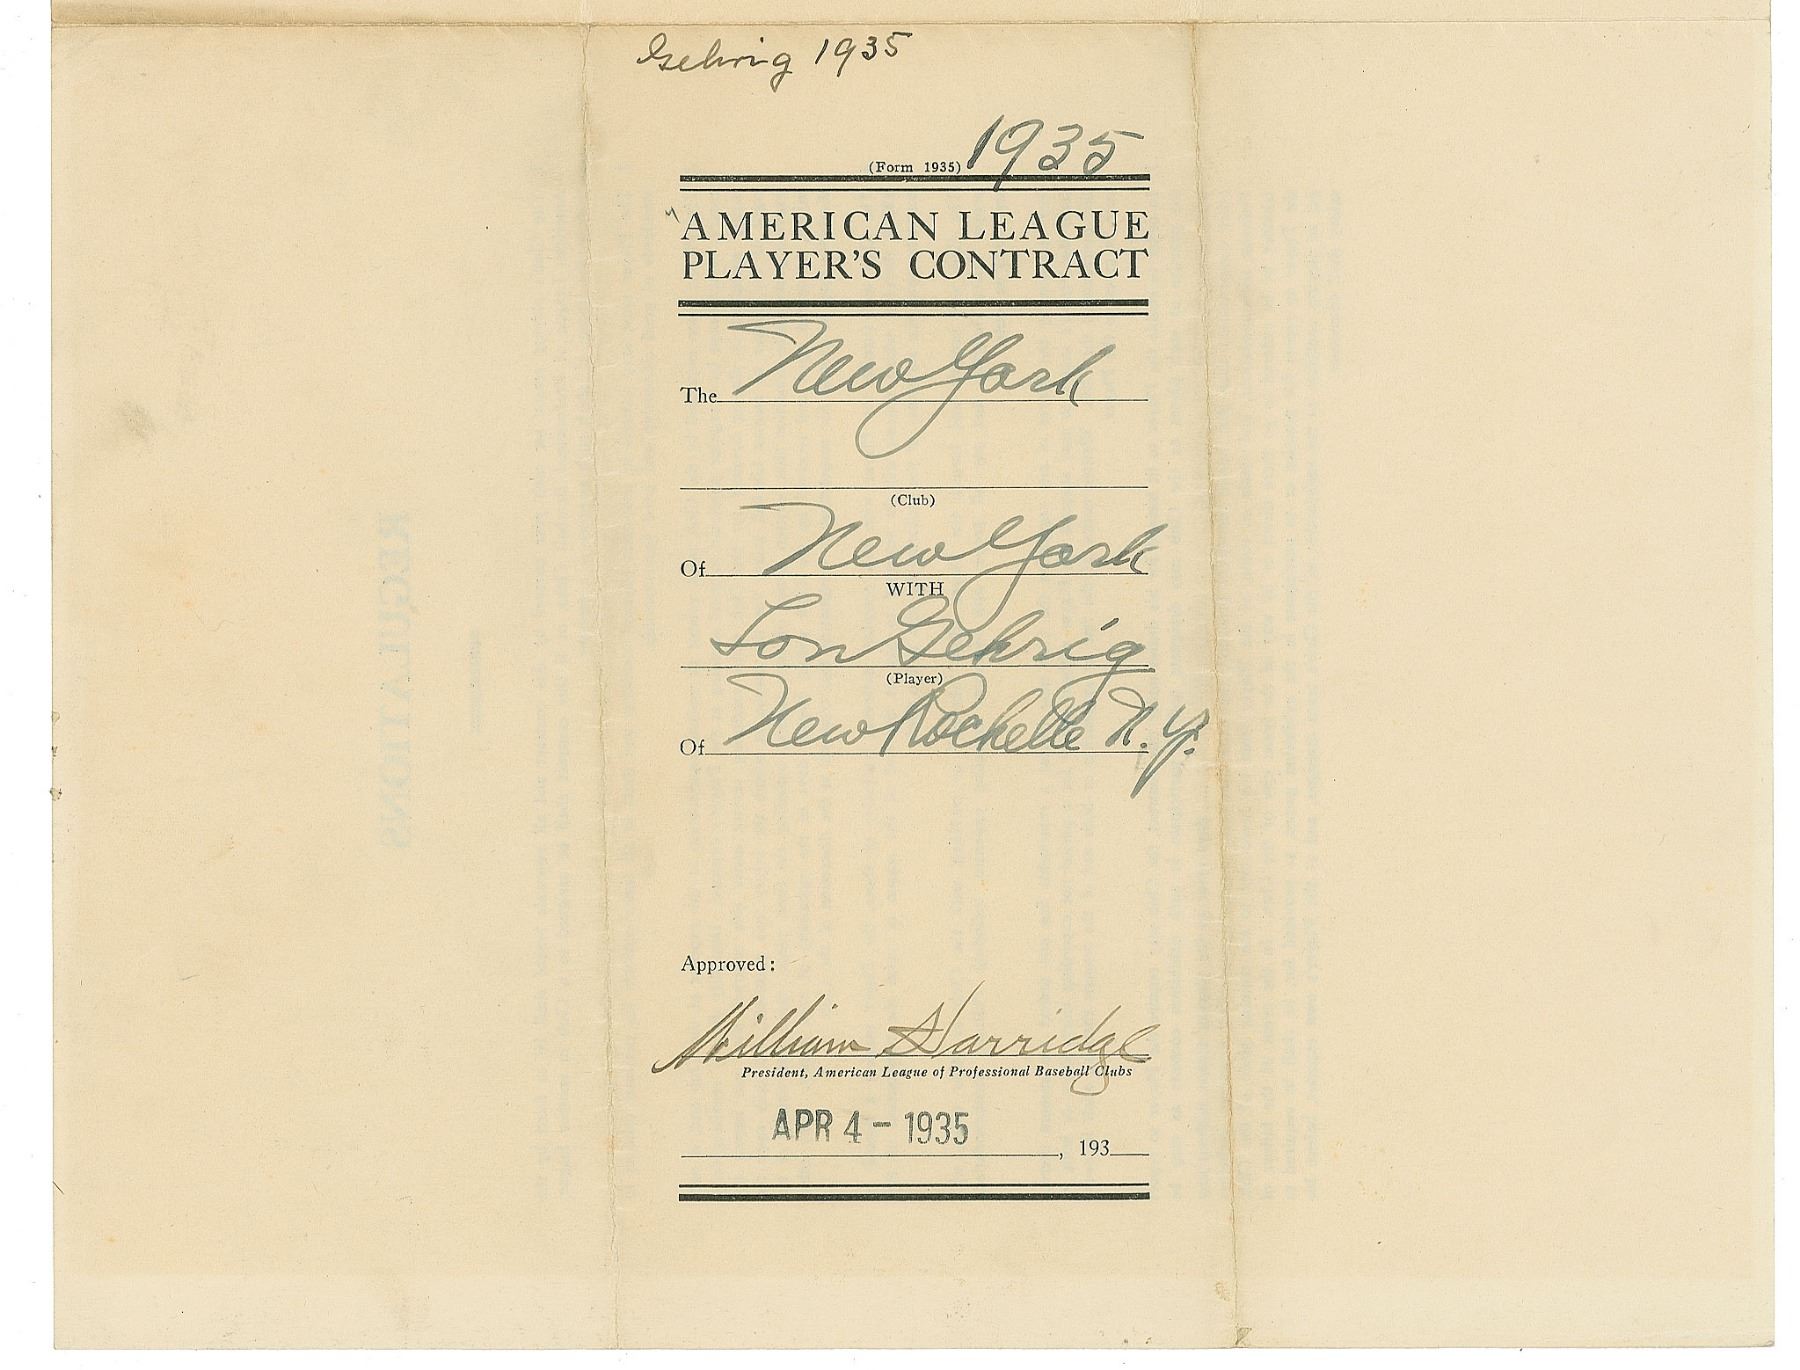 Gehrig 1935
(Form 1935) 1935
AMERICAN LEAGUE
PLAYER'S CONTRACT
The New York
(Club)
Of New York
WITH
Lou Gehrig
(Player)
Of New Rochelle N.Y.
Approved:
William Harridge
President, American League of Professional Baseball Clubs
APR 4 - 1935
, 193
REGULATIONS